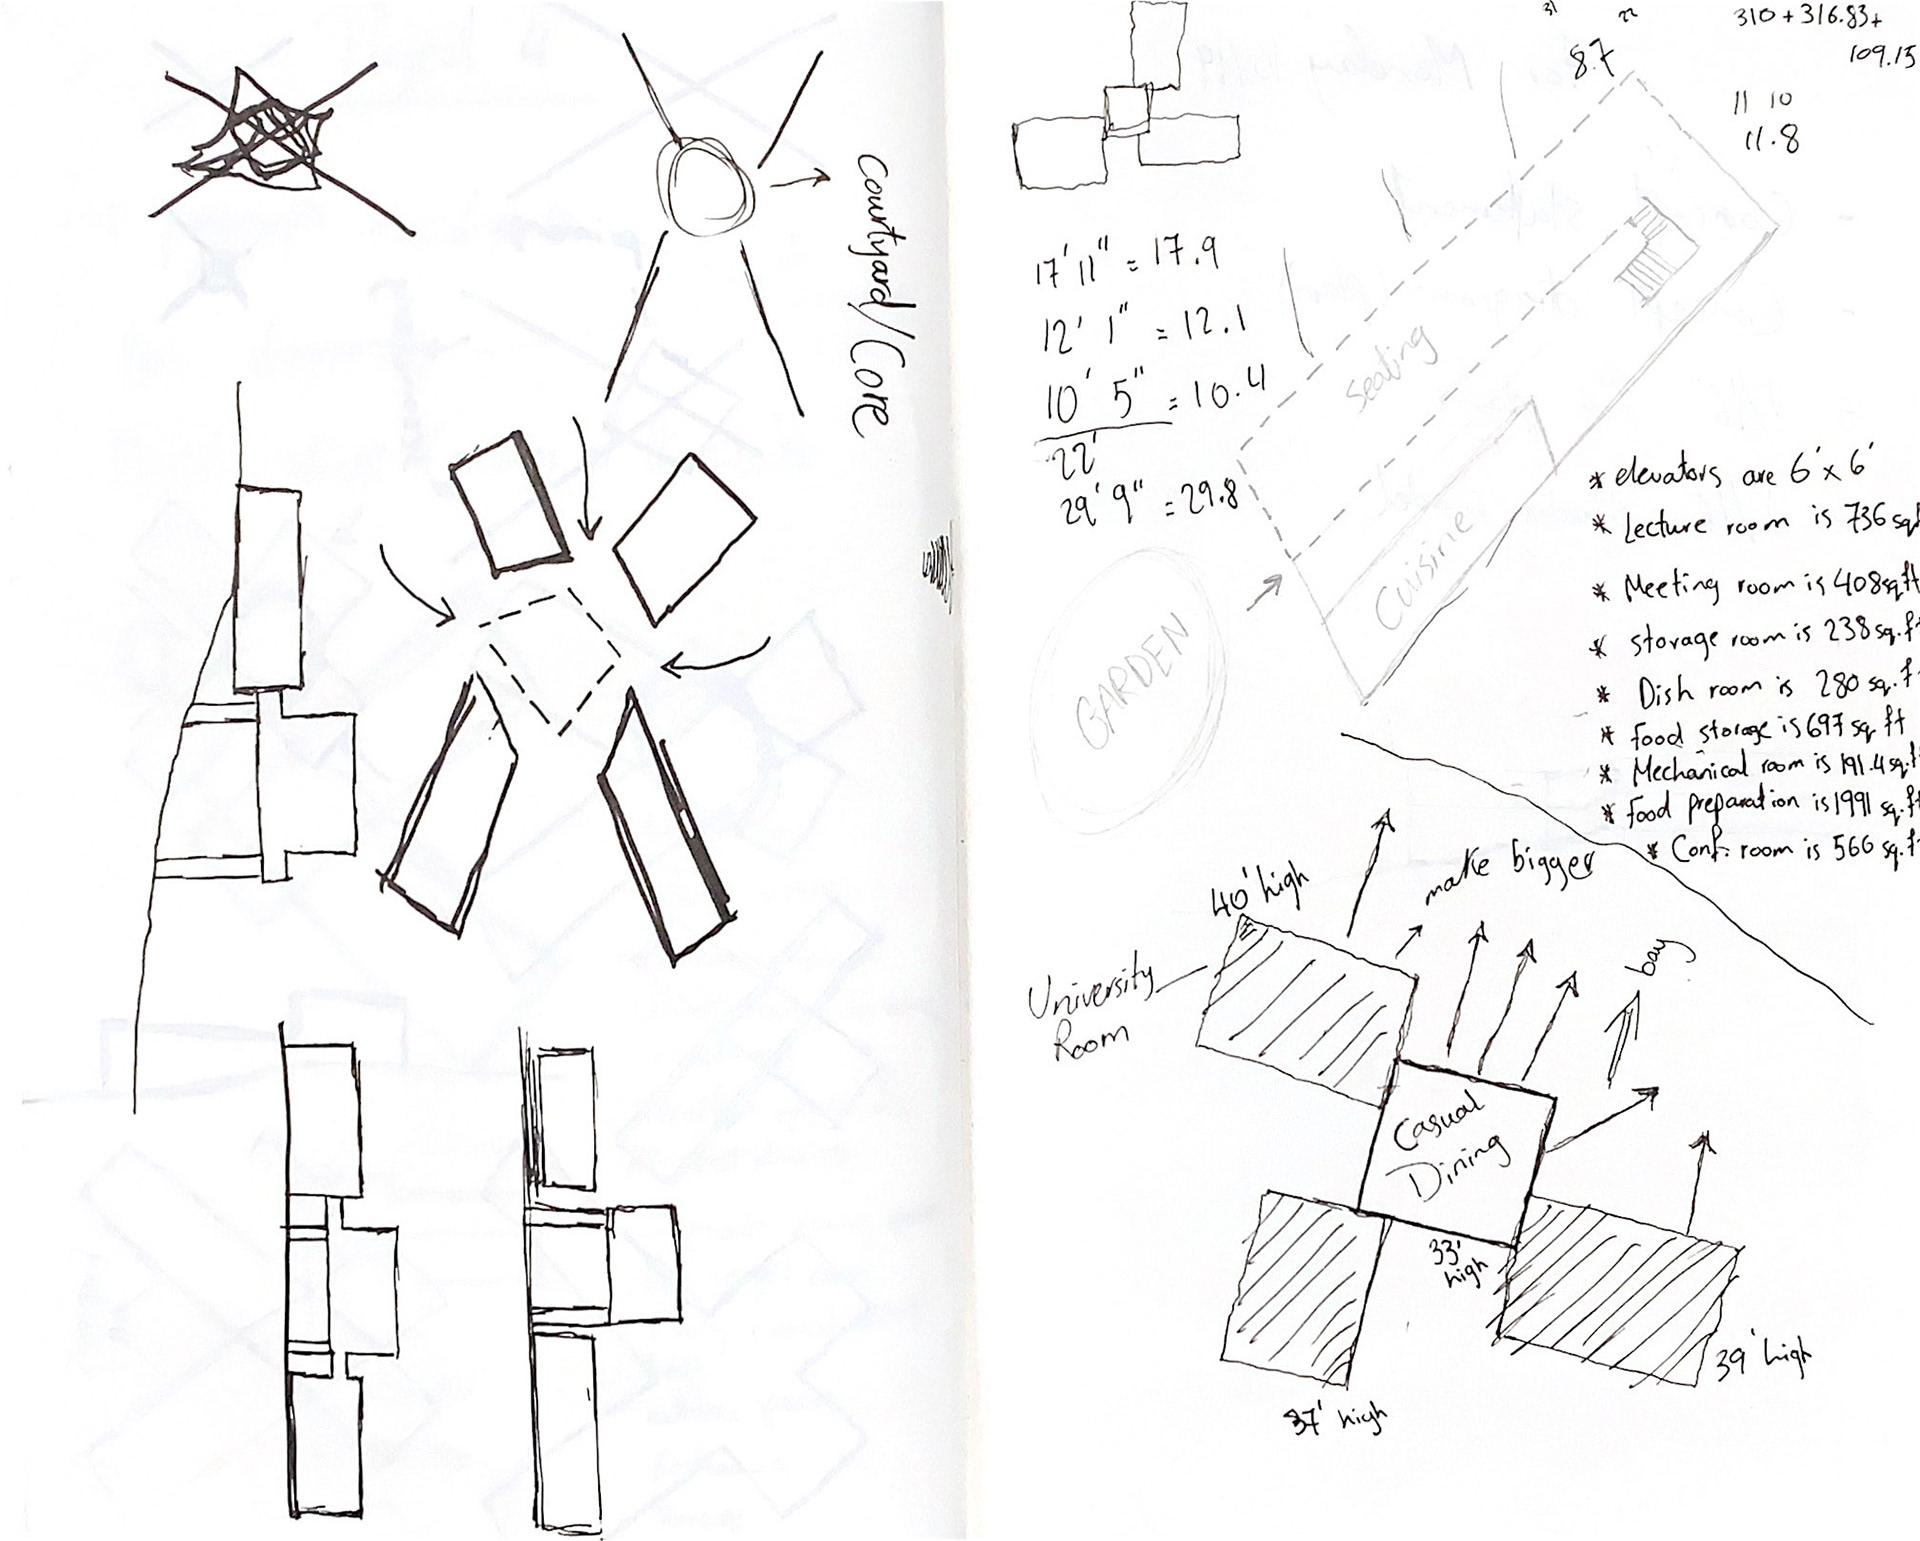 Courtyard/Core
31
22
310 + 316.83 +
109.15
8.7
11 10
11.8
17' 11" = 17.9
12' 1" = 12.1
10' 5" = 10.4
22'
29' 9" = 29.8
seating
Cuisine
GARDEN
* elevators are 6' x 6'
* Lecture room is 736 sq
* Meeting room is 408 sq ft
* storage room is 238 sq. ft
* Dish room is 280 sq. f
* food storage is 697 sq ft
* Mechanical room is 191.4 sq.f
* Food preparation is 1991 sq. ft
* Conf. room is 566 sq. f
make bigger
40' high
bay
University
Room
Casual
Dining
33'
high
39' high
37' high